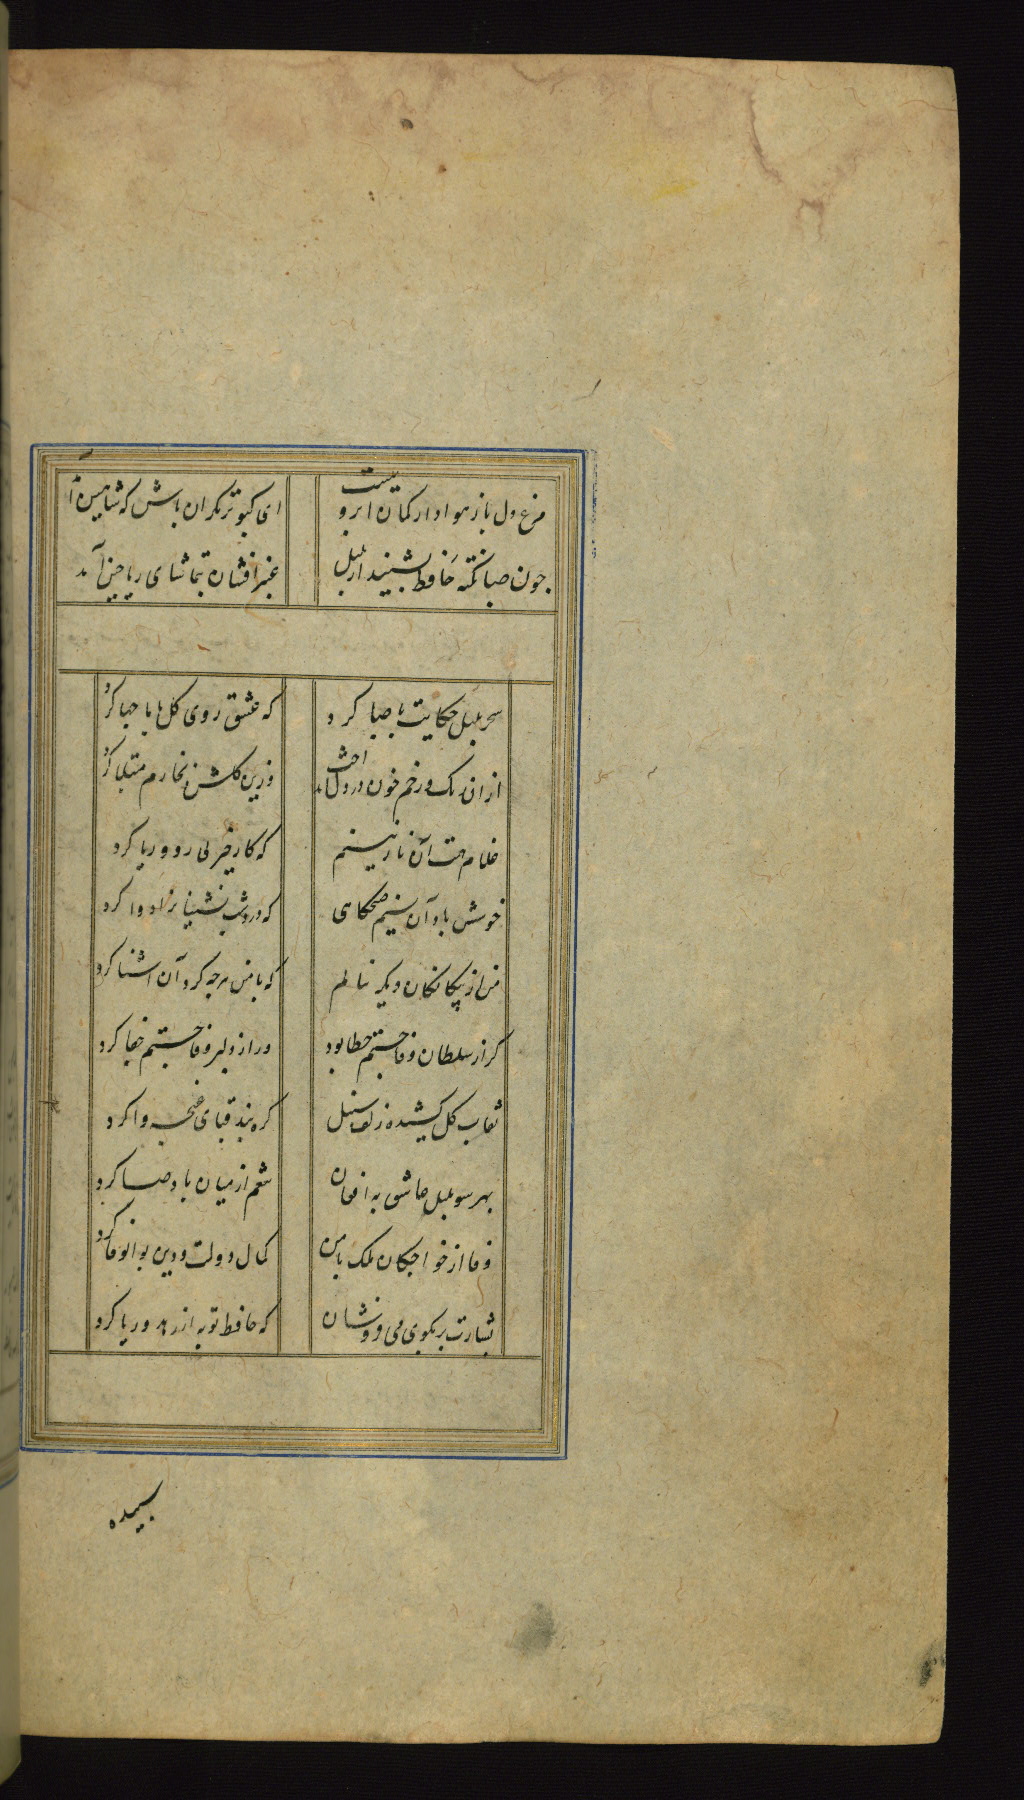 مرغ دل باز هوادار کمان ابرویست ای کبوتر نکران باش که شاهین آ
جون صبا نکته حافظ بشنید از بلبل عنبرافشان بتماشای ریاحین آمد
سحر بلبل حکایت با صبا کرد که عشق روی کل با ما جها کرد
از ان رنک رخم خون در دل انداخت وزین کلشن بخارم مبتلا کرد
غلام همت آن نازنینم که کار خیر بی روو ریا کرد
خوش باد آن نسیم صبحکاهی که درد شب نشینانرا دوا کرد
من از بیکانکان دیکر ننالم که با من هرجه کرد آن اشنا کرد
کر از سلطان وفا جستم خطا بود ور از دلبر وفا جستم جفا کرد
نقاب کل کشیده زلف سنبل کره بند قبای غنچه وا کرد
بهر سو بلبل عاشق به افغان تنعم از میان باد صبا کرد
وفا از خواجکان ملک با من کمال دولت و دین بوالوفا کرد
بشارت بر بکوی می فروشان که حافظ توبه از زهد و ریا کرد